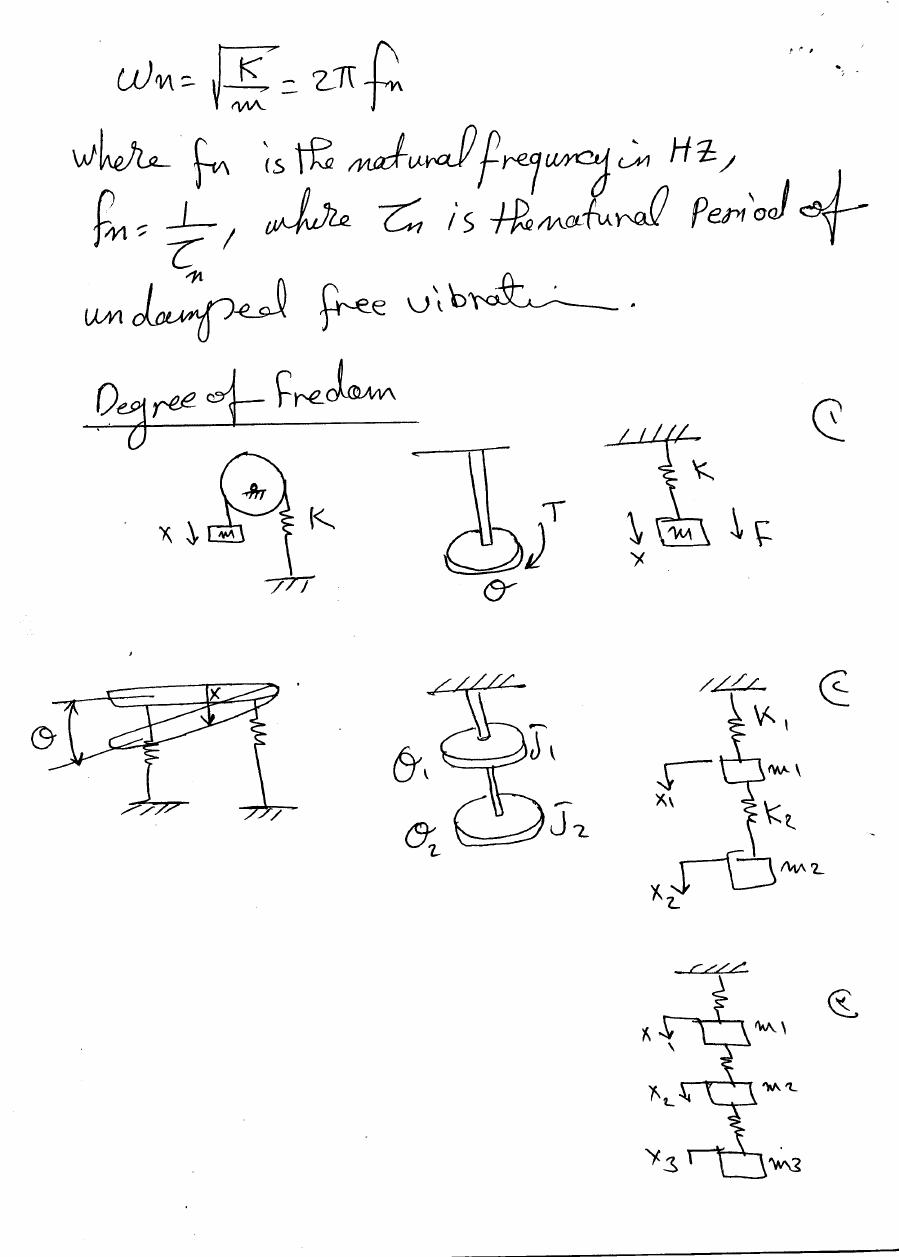 ωn = √(K/m) = 2π fn
where fn is the natural frequncy in HZ,
fn = 1/τn, where τn is the natural Period of
undamped free vibration.
Degree of fredom
x m K
T θ
K m x F
θ x
θ1 J1
θ2 J2
K1
x1 m1
K2
x2 m2
x1 m1
x2 m2
x3 m3